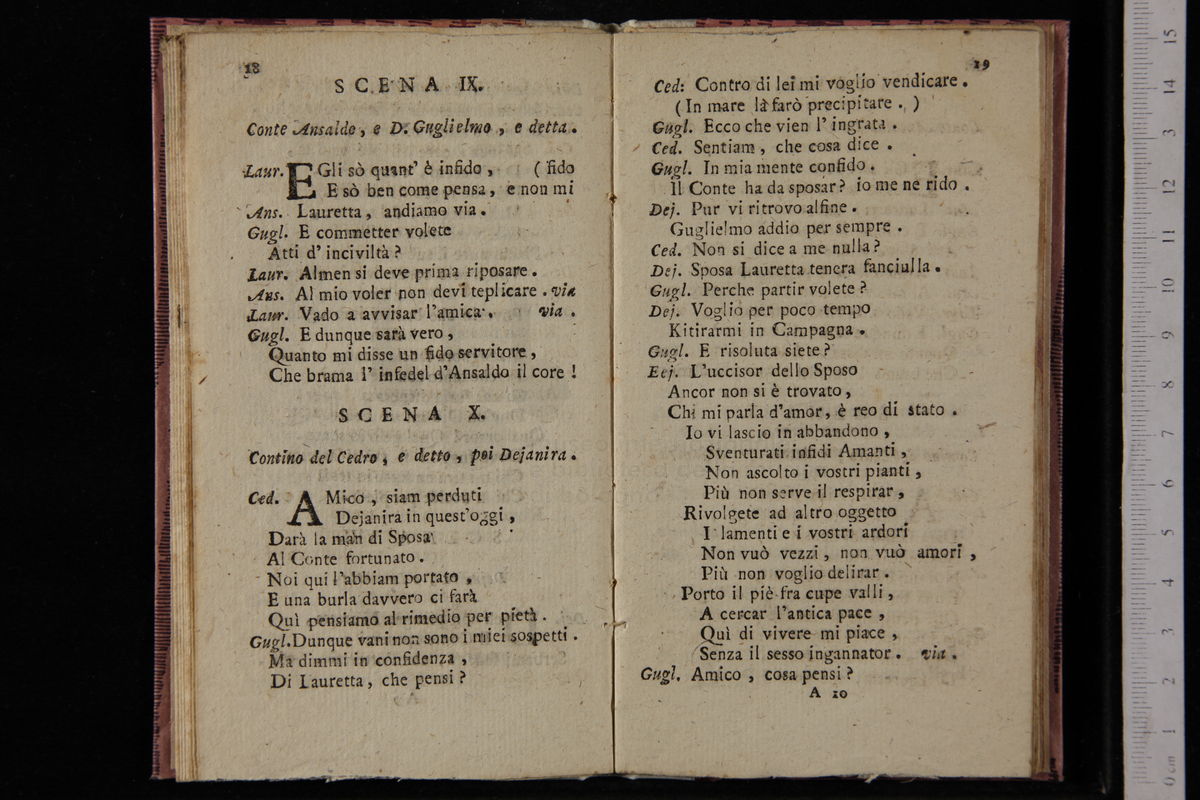 18
SCENA IX.
Conte Ansaldo, e D. Guglielmo, e detta.
Laur. EGli sò quant' è infido, (fido
E sò ben come pensa, e non mi
Ans. Lauretta, andiamo via.
Gugl. E commetter volete
Atti d' inciviltà?
Laur. Almen si deve prima riposare.
Ans. Al mio voler non devi teplicare. via
Laur. Vado a avvisar l'amica. via.
Gugl. E dunque sarà vero,
Quanto mi disse un fido servitore,
Che brama l' infedel d'Ansaldo il core!
SCENA X.
Contino del Cedro, e detto, poi Dejanira.
Ced. AMico, siam perduti
Dejanira in quest'oggi,
Darà la man di Sposa
Al Conte fortunato.
Noi qui l'abbiam portato,
E una burla davvero ci farà
Quì pensiamo al rimedio per pietà.
Gugl. Dunque vani non sono i miei sospetti.
Ma dimmi in confidenza,
Di Lauretta, che pensi?
19
Ced: Contro di lei mi voglio vendicare.
(In mare la farò precipitare.)
Gugl. Ecco che vien l' ingrata.
Ced. Sentiam, che cosa dice.
Gugl. In mia mente confido.
Il Conte ha da sposar? io me ne rido.
Dej. Pur vi ritrovo alfine.
Guglielmo addio per sempre.
Ced. Non si dice a me nulla?
Dej. Sposa Lauretta tenera fanciulla.
Gugl. Perche partir volete?
Dej. Voglio per poco tempo
Kitirarmi in Campagna.
Gugl. E risoluta siete?
Eej. L'uccisor dello Sposo
Ancor non si è trovato,
Chi mi parla d'amor, è reo di stato.
Io vi lascio in abbandono,
Sventurati infidi Amanti,
Non ascolto i vostri pianti,
Più non serve il respirar,
Rivolgete ad altro oggetto
I lamenti e i vostri ardori
Non vuò vezzi, non vuò amori,
Più non voglio delirar.
Porto il piè fra cupe valli,
A cercar l'antica pace,
Quì di vivere mi piace,
Senza il sesso ingannator. via.
Gugl. Amico, cosa pensi?
A 10
0 cm 1 2 3 4 5 6 7 8 9 10 11 12 13 14 15